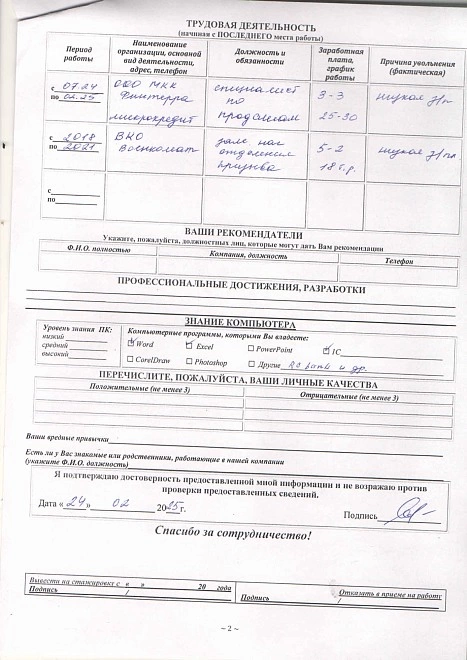 ТРУДОВАЯ ДЕЯТЕЛЬНОСТЬ
(начиная с ПОСЛЕДНЕГО места работы)
Период работы
Наименование организации, основной вид деятельности, адрес, телефон
Должность и обязанности
Заработная плата, график работы
Причина увольнения (фактическая)
с 07.24
по 02.25
ООО МКК
Финтерра
микрокредит
специалист
по
продажам
3-3
25-30
низкая з/п
с 2018
по 2021
ВКО
Военкомат
зам. нач
отделения
призыва
5-2
18 т.р.
низкая з/пл.
с
по
ВАШИ РЕКОМЕНДАТЕЛИ
Укажите, пожалуйста, должностных лиц, которые могут дать Вам рекомендации
Ф.И.О. полностью
Компания, должность
Телефон
ПРОФЕССИОНАЛЬНЫЕ ДОСТИЖЕНИЯ, РАЗРАБОТКИ
ЗНАНИЕ КОМПЬЮТЕРА
Уровень знания ПК:
низкий
средний
высокий
Компьютерные программы, которыми Вы владеете:
Word Excel PowerPoint 1С
CorelDraw Photoshop Другие и др.
ПЕРЕЧИСЛИТЕ, ПОЖАЛУЙСТА, ВАШИ ЛИЧНЫЕ КАЧЕСТВА
Положительные (не менее 3)
Отрицательные (не менее 3)
Ваши вредные привычки
Есть ли у Вас знакомые или родственники, работающие в нашей компании
(укажите Ф.И.О. должность)
Я подтверждаю достоверность предоставленной мной информации и не возражаю против
проверки предоставленных сведений.
Дата « 24 » 02 2025 г.
Подпись
Спасибо за сотрудничество!
Вывести на стажировку с « » 20 года
Подпись /
Отказать в приеме на работу
Подпись /
~ 2 ~